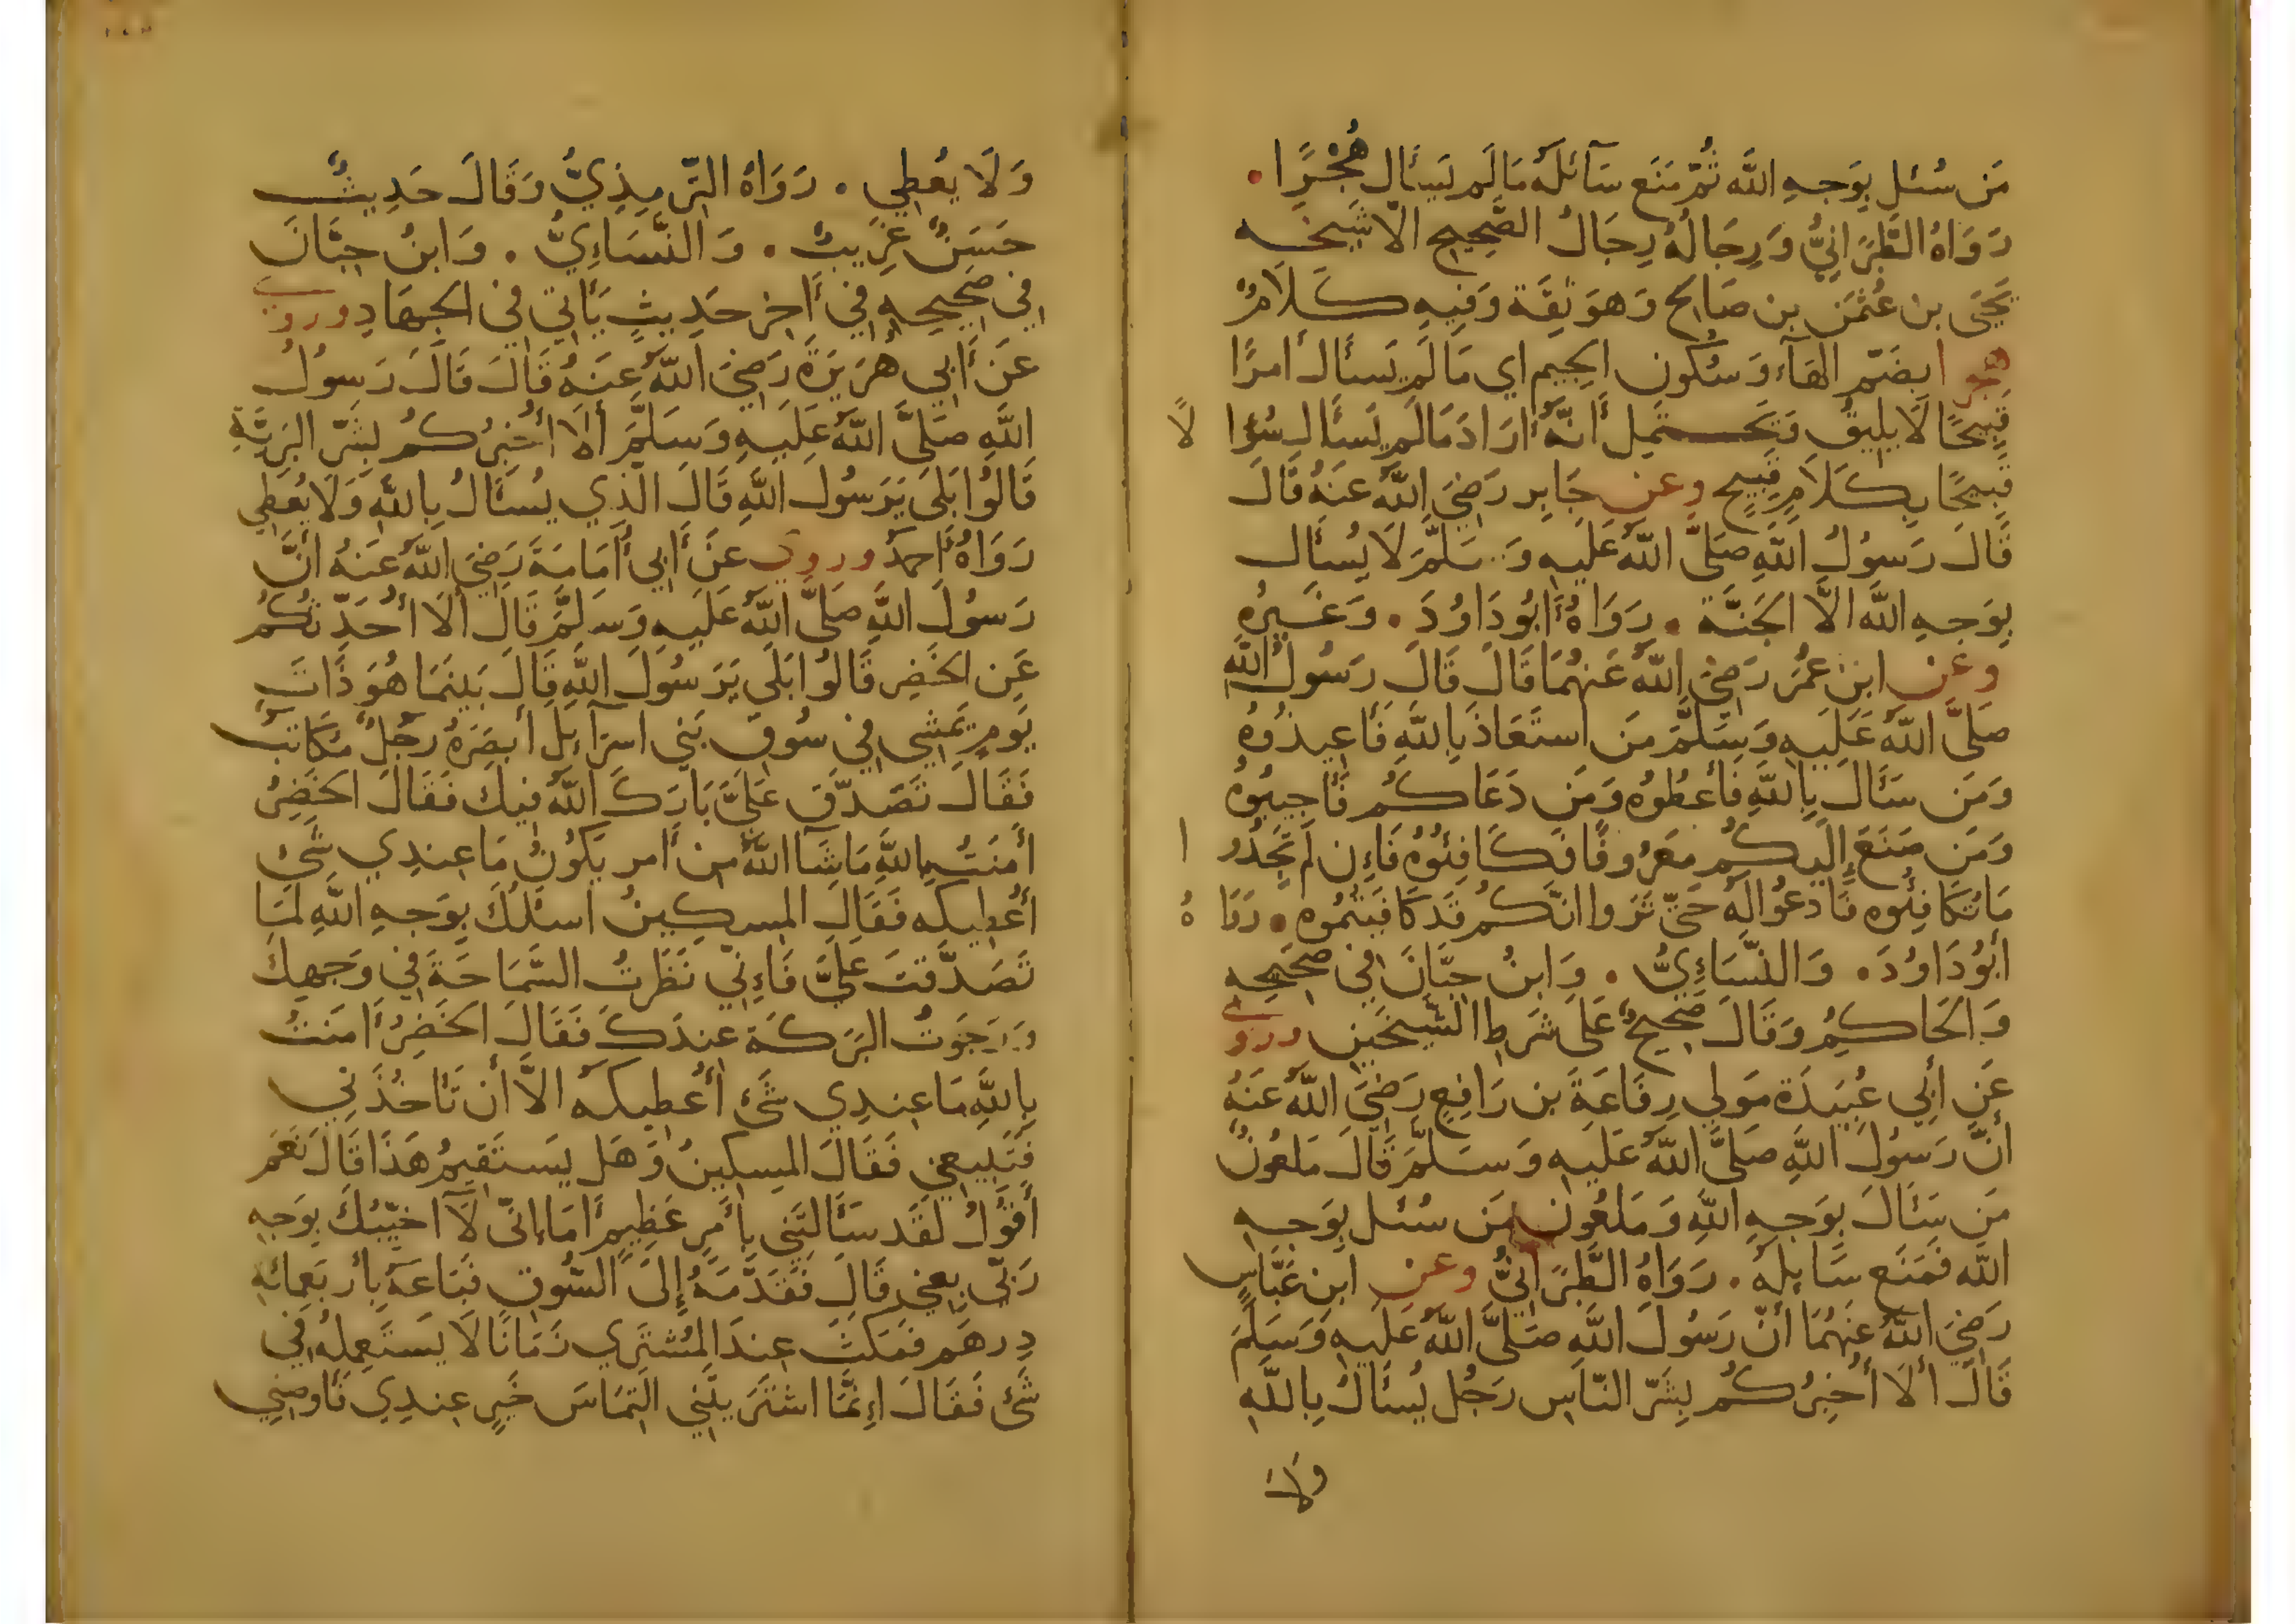 مَن سُئل بِوَجهِ اللّٰه ثُمّ مَنَع سَآئلَهُ مَا لَم يَسئَل هُجْرًا.
رَوَاهُ الطَّبَرَانِيُّ وَرِجَالُهُ رِجَالُ الصَّحِيحِ الّا شَيخه
يَحيَى بن عُثمَن بن صَالح وَهوَ ثِقَة وَفِيهِ كَلَامٌ
هجرا بِضَمّ الهَآء وَسُكُون الجِيم اي مَا لَم يَسئَال أمرًا
قَبِيحًا لَا يَلِيقُ وَيَحتَمِل أَنّهُ ارَادَ مَا لَم يَسئَال سُؤا لًا
قَبِيحًا بِكَلَامٍ قَبِيحٍ وعن جَابِر رَضِيَ اللّٰهُ عَنهُ قَالَ
قَالَ رَسولُ اللّٰهِ صَلَّى اللّٰهُ عَلَيهِ وَسَلَّمَ لَا يُسئَال
بِوَجهِ اللّٰه الَّا الجَنَّة. رَوَاهُ أَبُو دَاوُدَ. وَغَيرُهِ
وعَن ابن عُمَرَ رَضِيَ اللّٰهُ عَنهُمَا قَالَ قَالَ رَسُولُ اللّٰهِ
صَلَّى اللّٰهُ عَلَيهِ وَسَلَّمَ مَن استَعَاذَ بِاللّٰهِ فَأَعِيذُوهُ
وَمَن سَئَالَ بِاللّٰهِ فَأعطُوه وَمَن دَعَاكُم فَأَجِيبُوهُ
وَمَن صَنَعَ إلَيكُم مَعرُوفًا فَكَافِئُوهُ فَإِن لَم تَجِدُو ا
مَا تُكَافِئُوه فَادعُوا لَهُ حَتّى تَرَوا انَّكُم قَد كَافَيتُمُوه. رَوَا هُ
أبُو دَاوُدَ. وَالنَّسَاءِيُّ. وَابنُ حِبّانَ فِي صَحِيحِه
وَالحَاكِمُ وَقَالَ صَحِيحٌ عَلَى شَرطِ الشَّيخَينِ وروي
عَن أَبِي عُبَيدَة مَولى رِفَاعَةَ بن رَافِعٍ رَضِيَ اللّٰهُ عَنهُ
أنَّ رَسُولَ اللّٰهِ صَلَّى اللّٰهُ عَلَيهِ وَسَلَّمَ قَالَ مَلعُونٌ
مَن سَئَالَ بِوَجهِ اللّٰهِ وَمَلعُون مَن سُئل بِوَجهِ
اللّٰه فَمَنَع سَايلهُ. رَوَاهُ الطَّبَرَانِيُّ وعن ابن عَبَّاسٍ
رَضِيَ اللّٰهُ عَنهُمَا أنّ رَسُولَ اللّٰهِ صَلَّى اللّٰهُ عَلَيهِ وَسَلَّمَ
قَالَ ألَا أُخبِرُكُم بِشَرّ النّاسِ رَجُل يُسئَالُ بِاللّٰهِ
ولا
وَلَا يُعطِي. رَوَاهُ التِّرمِذِيُّ وَقَالَ حَدِيثٌ
حَسَنٌ غَرِيبٌ. وَالنَّسَاءِيُّ. وَابنُ حِبَّانَ
فِي صَحِيحِهِ فِي أَخِرِ حَدِيثٍ يَأتِي فِي الجِهَادِ وروي
عَن أَبِي هُرَيرَةَ رَضِيَ اللّٰهُ عَنهُ قَالَ قَالَ رَسُولُ
اللّٰهِ صَلَّى اللّٰهُ عَلَيهِ وَسَلَّمَ ألَا أُخبِرُكُم بِشَرّ البَرِيَّةِ
قَالُوا بَلَى يَرَسُولَ اللّٰهِ قَالَ الَّذِي يُسئَالُ بِاللّٰهِ وَلَا يُعطِي
رَوَاهُ أَحمَدُ وروي عَن أَبِي أُمَامَةَ رَضِيَ اللّٰهُ عَنهُ أَنَّ
رَسُولَ اللّٰهِ صَلَّى اللّٰهُ عَلَيهِ وَسَلَّمَ قَالَ ألَا أُحَدِّثُكُم
عَنِ الخَضِر قَالُوا بَلَى يَرَسُولَ اللّٰهِ قَالَ بَينَمَا هُوَ ذَاتَ
يَومٍ يَمشِي فِي سُوقِ بَنِي اسرَآئِلَ أبصَرَهُ رَجُلٌ مُكَاتَبٌ
فَقَالَ تَصَدَّق عَلَيَّ بَارَكَ اللّٰهُ فِيكَ فَقَالَ الخَضِرُ
أمَنتُ بِاللّٰهِ مَا شَآ اللّٰهُ مِن أَمر يَكُونُ مَا عِندِي شَيءٌ
أُعطِيكَه فَقَالَ المِسكِينُ اسئَلُكَ بِوَجهِ اللّٰهِ لَمَا
تَصَدَّقتَ عَلَيَّ فَإِنِّي نَظَرتُ السَّمَاحَةَ فِي وَجهِكَ
وَرَجَوتُ البَرَكَة عِندَكَ فَقَالَ الخَضِرُ أَمَنتُ
بِاللّٰهِ مَا عِندِي شَيءٌ أُعطِيكَهُ الَّا أَن تَأخُذَنِي
فَتَبِيعَنِي فَقَالَ المِسكِينُ وَهَل يَستَقِيمُ هَذَا قَالَ نَعَم
أَقُولُ لَقَد سَأَلتَنِي بِأَمرٍ عَظِيمٍ أَمَا إنّي لَا أخَيِّبُكَ بِوَجهِ
رَبّي بِعنِي قَالَ فَقَدَّمَهُ إِلَى السُّوقِ فَبَاعَهُ بِأَربَعِمائَةِ
دِرهَم فَمَكَثَ عِندَ المُشتَرِي زَمَانًا لَا يَستَعمِلُهُ فِي
شَيءٍ فَقَالَ إِنَّمَا اشتَرَيتَنِي التِمَاسَ خَيرٍ عِندِي فَأَوصِنِي